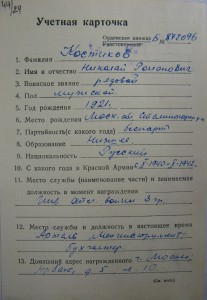 Учетная карточка
Орденская книжка Б № 872096
Удостоверение
1. Фамилия Костиков
2. Имя и отчество Николай Романович
3. Воинское звание рядовой
4. Пол мужской
5. Год рождения 1921 г.
6. Место рождения Моск. обл.
7. Партийность (с какого года) беспарт
8. Образование Низшее
9. Национальность Русский
10. С какого года в Красной Армии с 1940 - 1942
11. Место службы (наименование части) и занимаемая
должность в момент награждения
12. Место службы и должность в настоящее время
Артель
Бухгалтер
13. Домашний адрес награжденного г. Москва,
Арбат, д. 5 10.